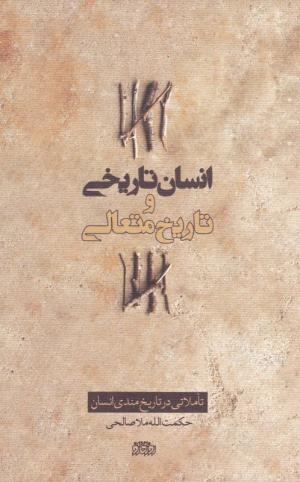 انسان تاریخی
و
تاریخ متعالی
تأملاتی در تاریخ مندی انسان
حکمت‌الله ملاصالحی